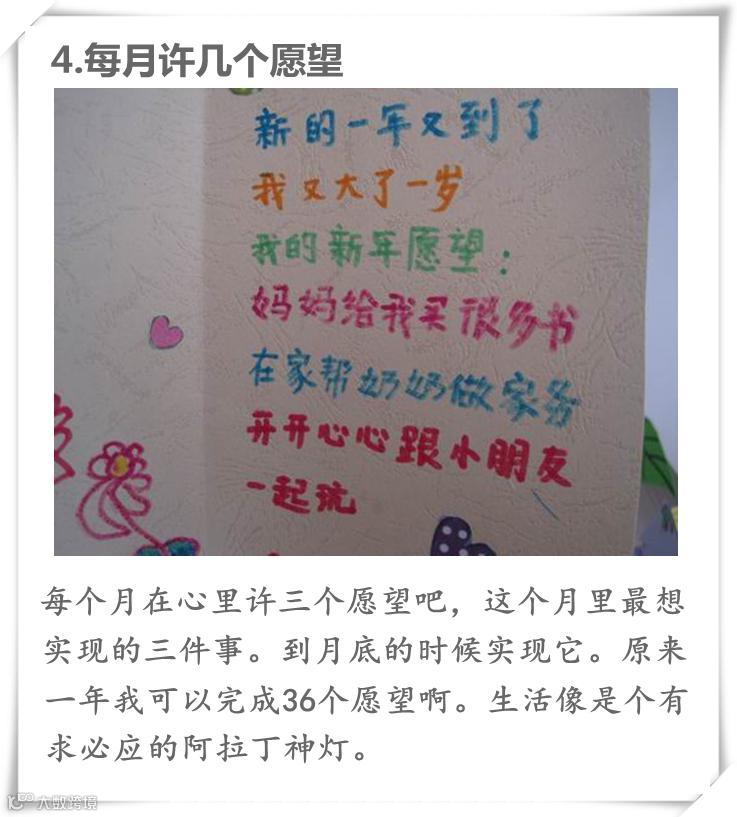 4.每月许几个愿望
新的一年又到了
我又大了一岁
我的新年愿望：
妈妈给我买很多书
在家帮奶奶做家务
开开心心跟小朋友
一起玩
每个月在心里许三个愿望吧，这个月里最想
实现的三件事。到月底的时候实现它。原来
一年我可以完成36个愿望啊。生活像是个有
求必应的阿拉丁神灯。
大数跨境